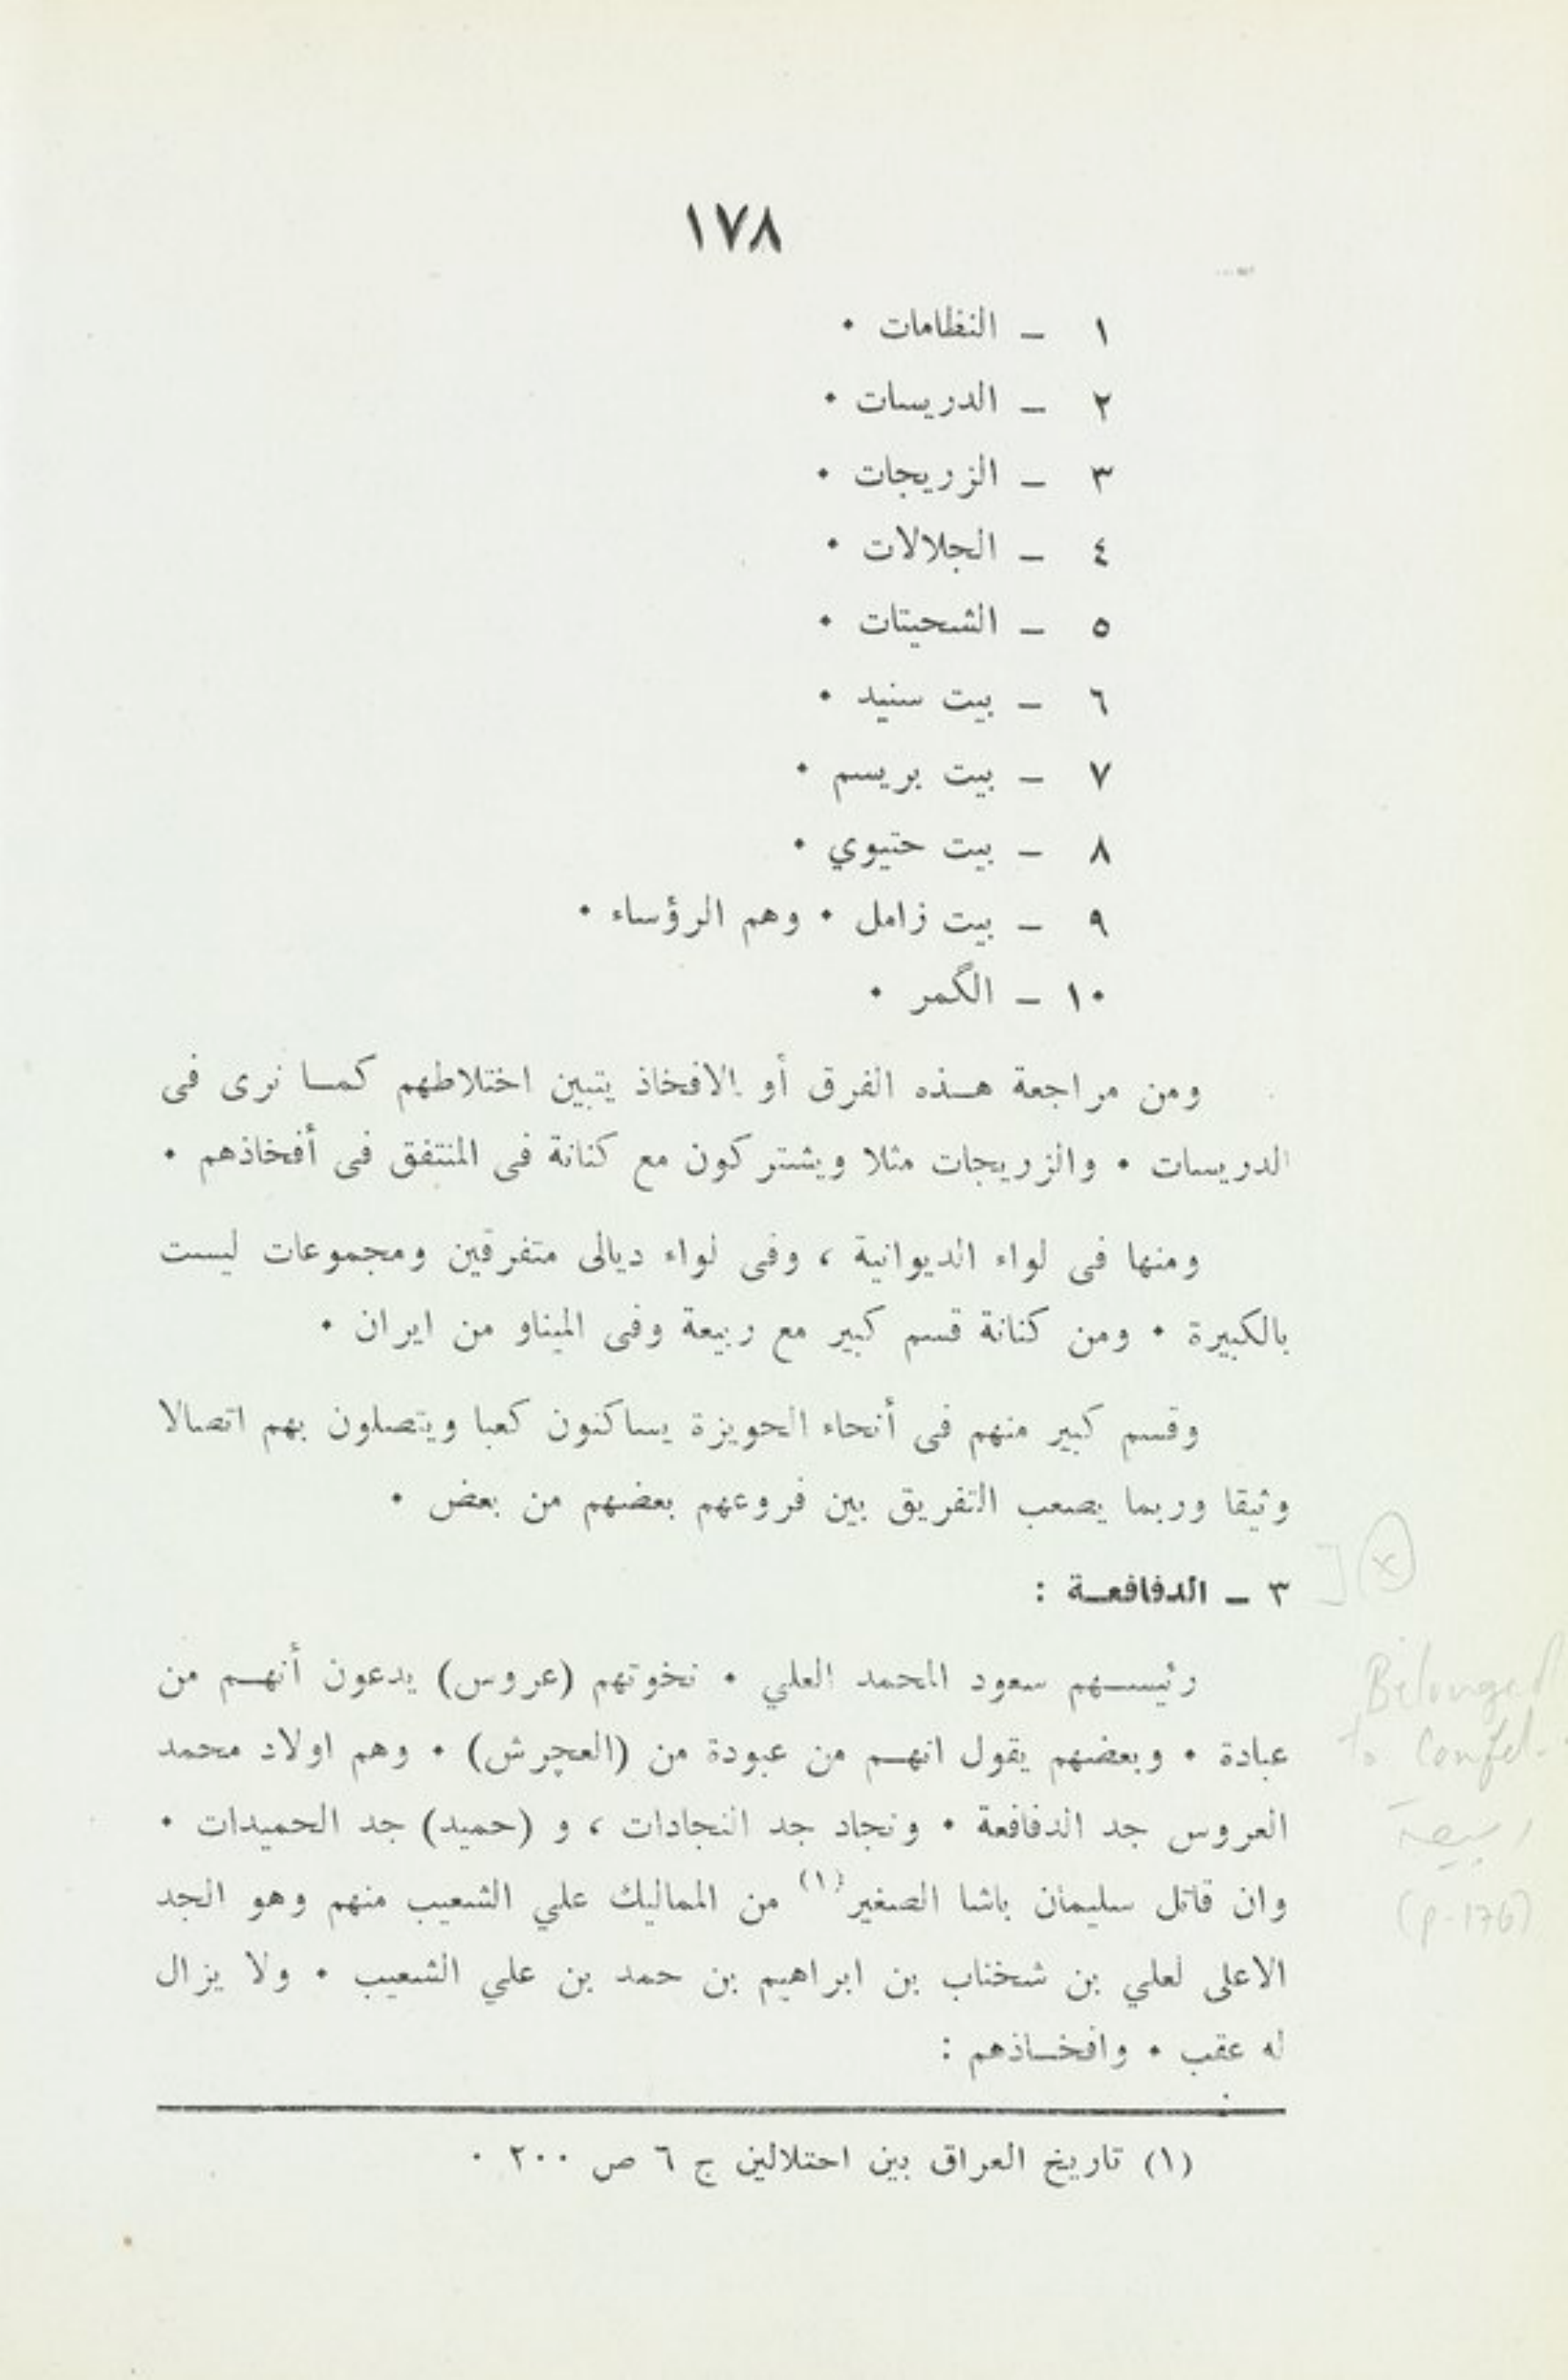 ١٧٨
١ – النظامات ٠
٢ – الدريسات ٠
٣ – الزريجات ٠
٤ – الجلالات ٠
٥ – الشحيتات ٠
٦ – بيت سنيد ٠
٧ – بيت بريسم ٠
٨ – بيت حتيوي ٠
٩ – بيت زامل ٠ وهم الرؤساء ٠
١٠ – الگمر ٠
ومن مراجعة هـذه الفرق أو الافخاذ يتبين اختلاطهم كمـا نرى فى
الدريسات ٠ والزريجات مثلا ويشتركون مع كنانة فى المنتفق فى أفخاذهم ٠
ومنها فى لواء الديوانية ، وفى لواء ديالى متفرقين ومجموعات ليست
بالكبيرة ٠ ومن كنانة قسم كبير مع ربيعة وفى الميناو من ايران ٠
وقسم كبير منهم فى أنحاء الحويزة يساكنون كعبا ويتصلون بهم اتصالا
وثيقا وربما يصعب التفريق بين فروعهم بعضهم من بعض ٠
٣ – الدفافعـة :
رئيسـهم سعود المحمد العلي ٠ نخوتهم (عروس) يدعون أنهـم من
عبادة ٠ وبعضهم يقول انهـم من عبودة من (العچرش) ٠ وهم اولاد محمد
العروس جد الدفافعة ٠ ونجاد جد النجادات ، و (حميد) جد الحميدات ٠
وان قاتل سليمان باشا الصغير(١) من المماليك علي الشعيب منهم وهو الجد
الاعلى لعلي بن شخناب بن ابراهيم بن حمد بن علي الشعيب ٠ ولا يزال
له عقب ٠ وافخـاذهم :
(١) تاريخ العراق بين احتلالين ج ٦ ص ٢٠٠ ٠
Belonged
to Confed.
ربيعة
(p. 176)